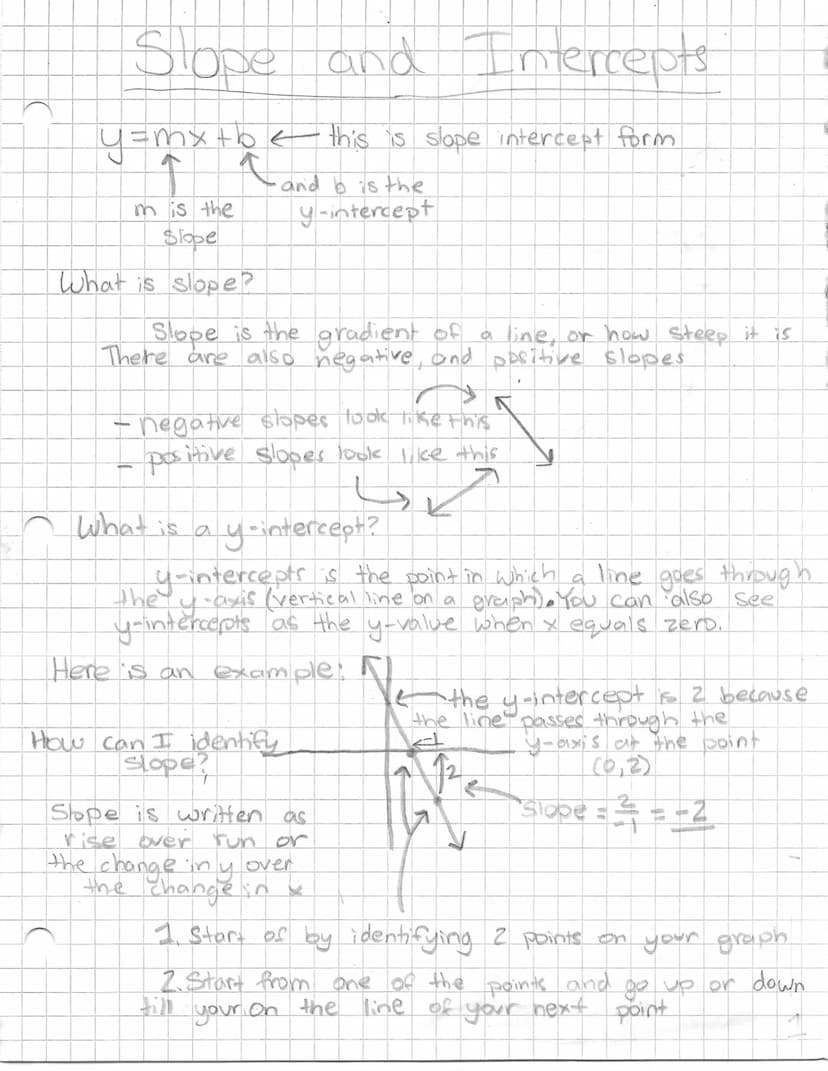 Slope and Intercepts
y=mx+b ← this is slope intercept form
and b is the
m is the y-intercept
slope
What is slope?
Slope is the gradient of a line, or how steep it is
There are also negative, and positive slopes
- negative slopes look like this
- positive slopes look like this
What is a y-intercept?
y-intercepts is the point in which a line goes through
the y-axis (vertical line on a graph). You can also see
y-intercepts as the y-value when x equals zero.
Here is an example:
the y-intercept is 2 because
the line passes through the
y-axis at the point
(0,2)
How can I identify
slope?
-1
2
slope = 2/-1 = -2
Slope is written as
rise over run or
the change in y over
the change in x
1. Start of by identifying 2 points on your graph
2. Start from one of the points and go up or down
till your on the line of your next point
1